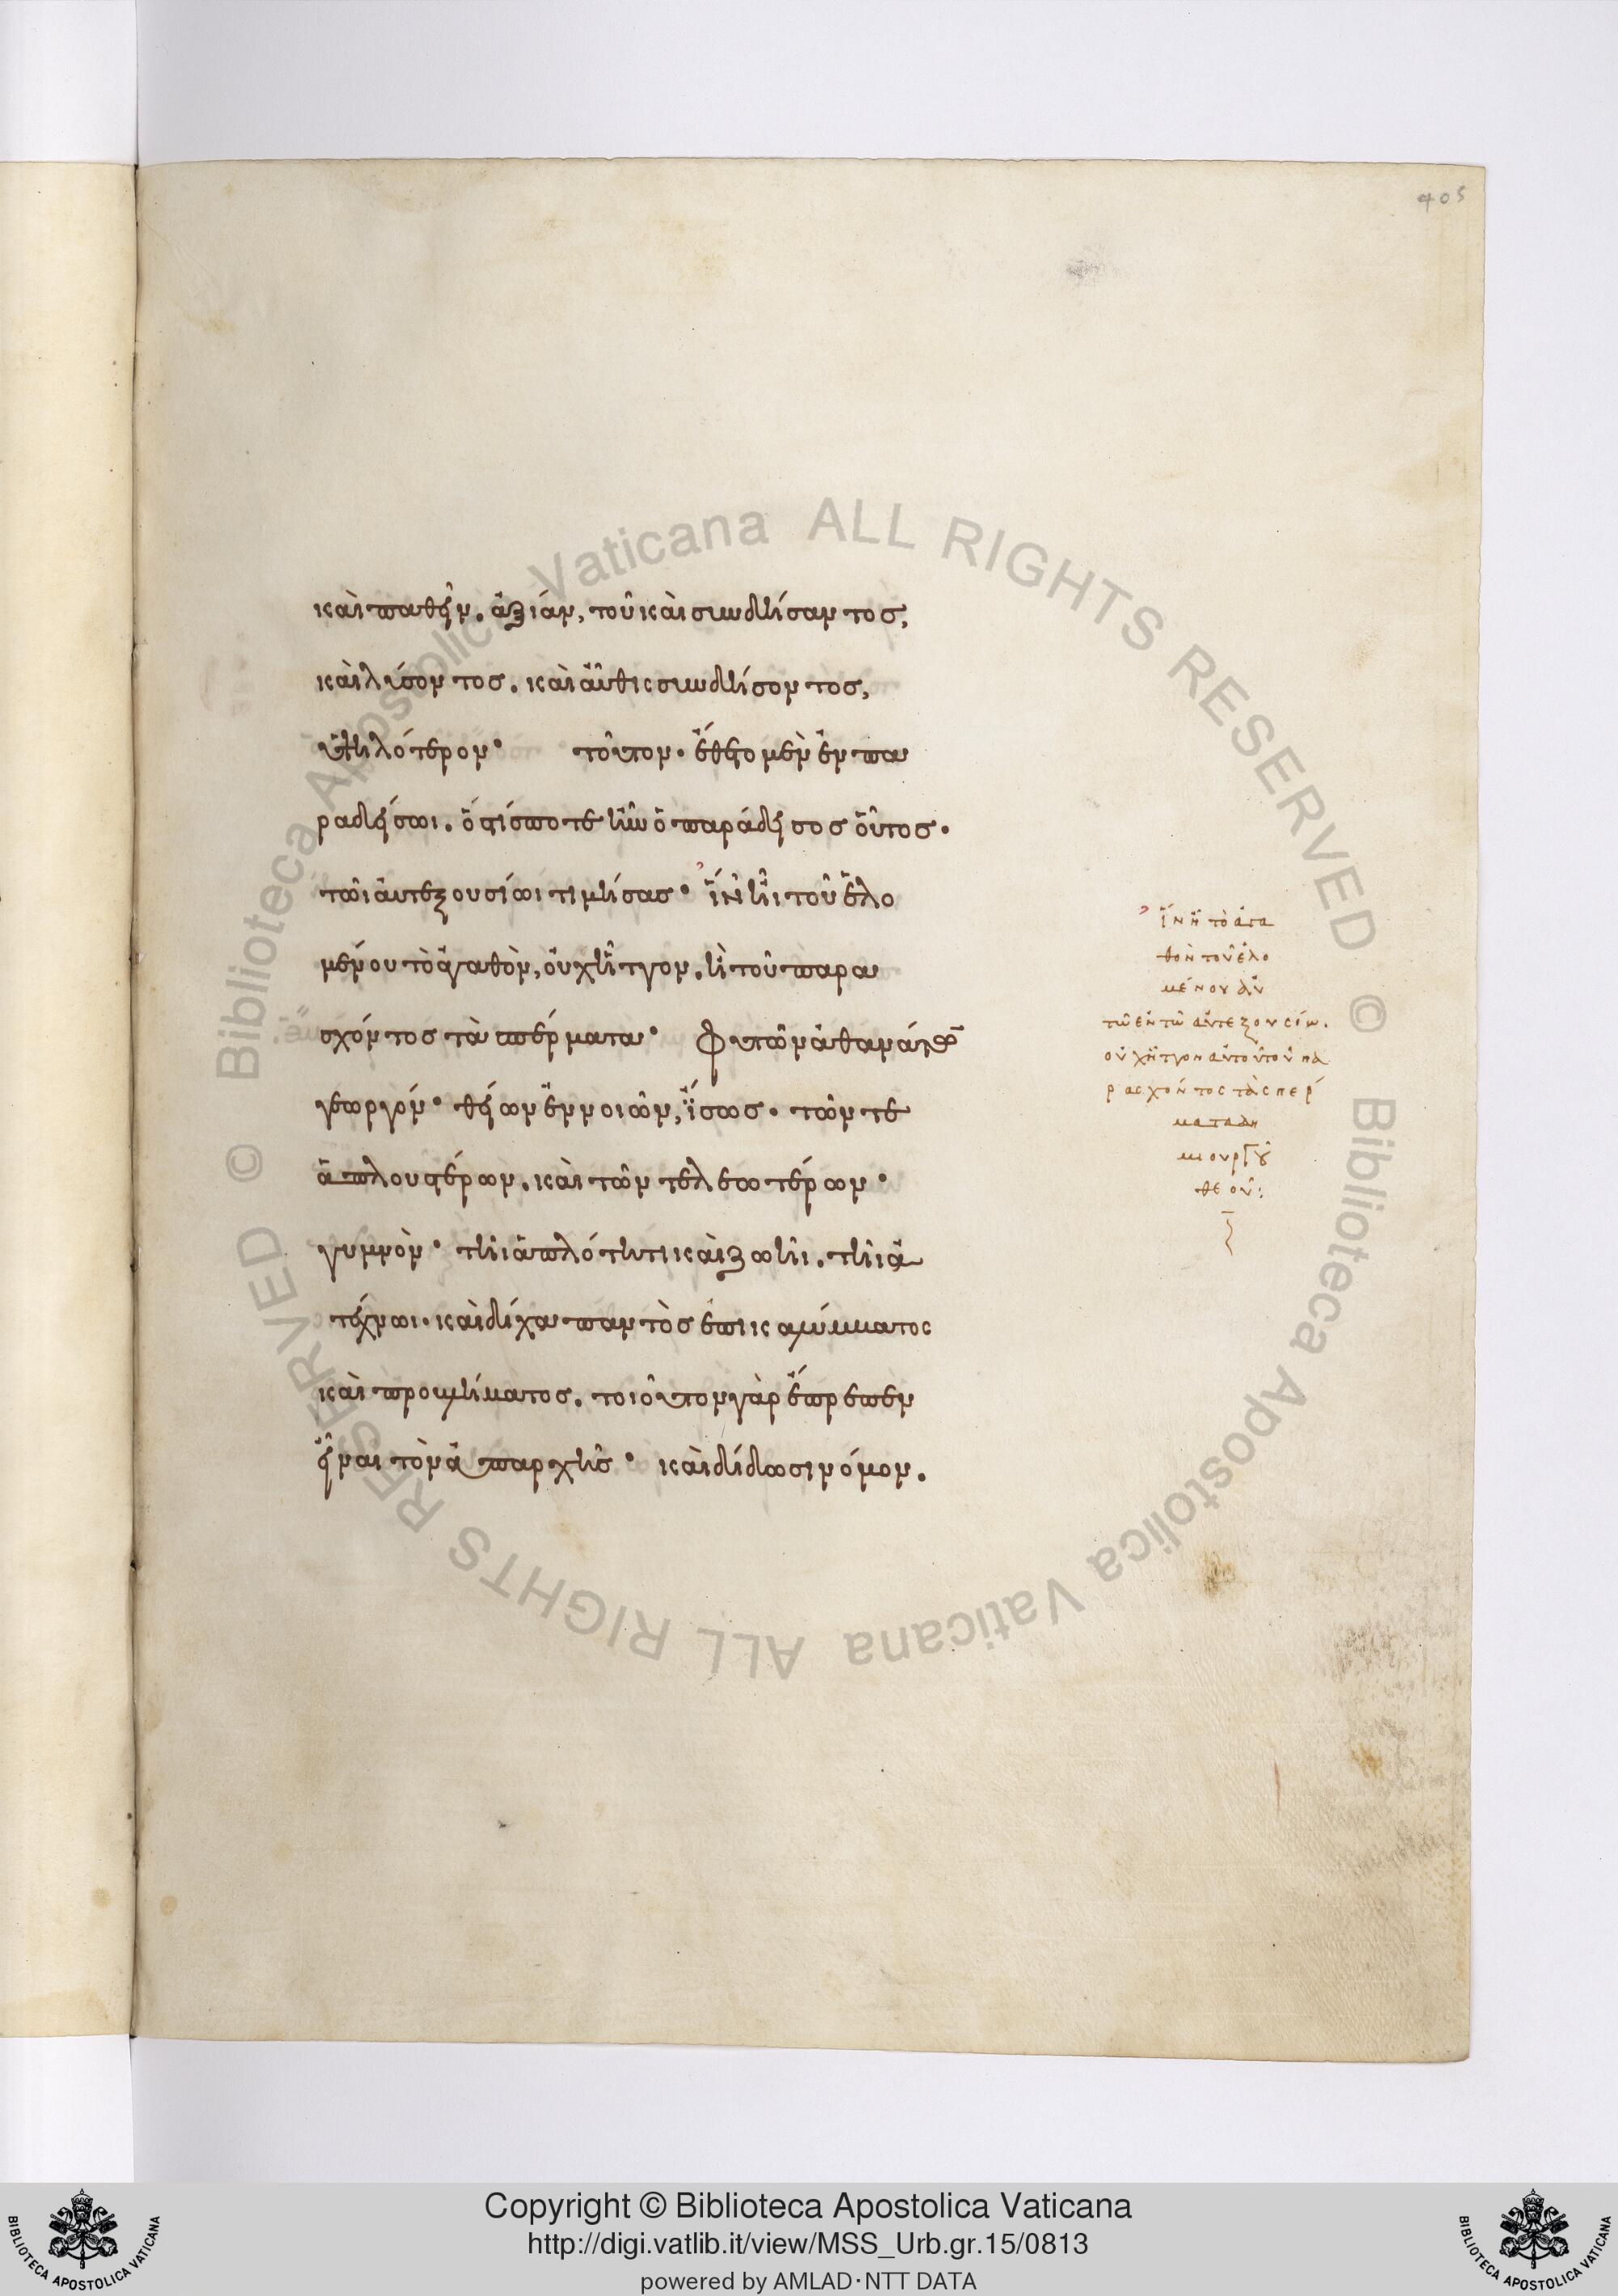 405
καὶ παθεῖν. ἀξίαν, τοῦ καὶ συνδήσαντος,
καὶ λύσοντος. καὶ αὖθις συνδήσοντος,
ὑψηλότερον· τοῦτον· ἔθετο μὲν ἐν πα
ραδείσωι. ὅστίς ποτε ἦν ὁ παράδεισος οὗτος·
τῶι αὐτεξουσίωι τιμήσας· ἵν' ἦι τοῦ ἑλο
μένου τὸ ἀγαθὸν, οὐχ ἧττον. ἢ τοῦ παρα
σχόντος τὰ σπέρματα· φυτῶν ἀθανάτων
γεωργόν· θείων ἐννοιῶν, ἴσως· τῶν τε
ἁπλουστέρων. καὶ τῶν τελεωτέρων·
γυμνὸν· τῆι ἁπλότητι καὶ ζωῆι. τῆι ἀ
τέχνωι· καὶ δίχα παντὸς ἐπικαλύμματος
καὶ προβλήματος. τοιοῦτον γὰρ ἔπρεπεν
εἶναι τὸν ἀπαρχῆς· καὶ δίδωσι νόμον.
ἵν ἦ τὸ ἀγα
θὸν τοῦ ἑλο
μένου ἀν
τῶ ἐν τῶ αὐτεξουσίω.
οὐχ ἧττον αὐτοῦ τοῦ πα
ρασχόντος τὰ σπέρ
ματα δη
μιουργοῦ
θεοῦ:
Copyright © Biblioteca Apostolica Vaticana
http://digi.vatlib.it/view/MSS_Urb.gr.15/0813
powered by AMLAD·NTT DATA
BIBLIOTECA APOSTOLICA VATICANA
BIBLIOTECA APOSTOLICA VATICANA
© Biblioteca Apostolica Vaticana ALL RIGHTS RESERVED
© Biblioteca Apostolica Vaticana ALL RIGHTS RESERVED